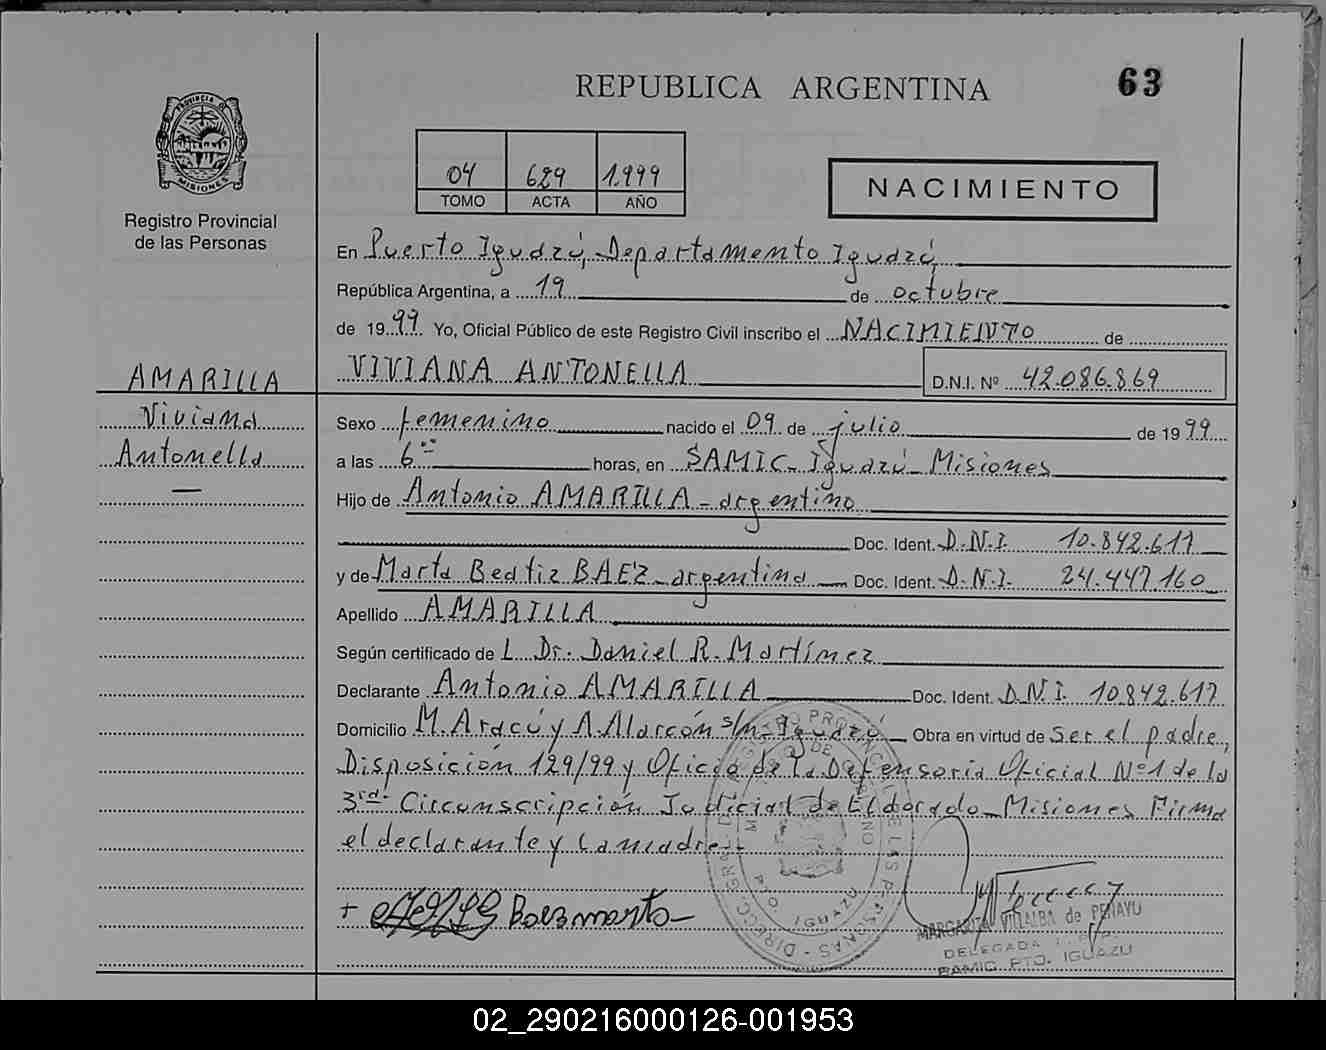 REPUBLICA ARGENTINA
63
PROVINCIA DE MISIONES
Registro Provincial
de las Personas
04 629 1.999
TOMO ACTA AÑO
NACIMIENTO
En Puerto Iguazú, Departamento Iguazú,
República Argentina, a 19 de octubre
de 1999 Yo, Oficial Público de este Registro Civil inscribo el NACIMIENTO de
VIVIANA ANTONELLA D.N.I. Nº 42.086.869
AMARILLA
Viviana
Antonella
—
Sexo femenino nacido el 09 de julio de 1999
a las 6 horas, en SAMIC - Iguazú - Misiones
Hijo de Antonio AMARILLA - argentino
Doc. Ident. D.N.I. 10.842.617
y de Marta Beatiz BAEZ - argentina Doc. Ident. D.N.I. 24.447.160
Apellido AMARILLA
Según certificado de L Dr. Daniel R. Martínez
Declarante Antonio AMARILLA Doc. Ident. D.N.I. 10.842.617
Domicilio M. Aracú y A. Alarcón s/n - Iguazú Obra en virtud de Ser el padre,
Disposición 129/99 y Oficio de la Defensoría Oficial Nº1 de la
3ra. Circunscripción Judicial de Eldorado - Misiones Firma
el declarante y la madre.-
+ Baez marta -
MARGARITA VILLALBA de PENAYU
DELEGADA
SAMIC PTO. IGUAZU
02_290216000126-001953